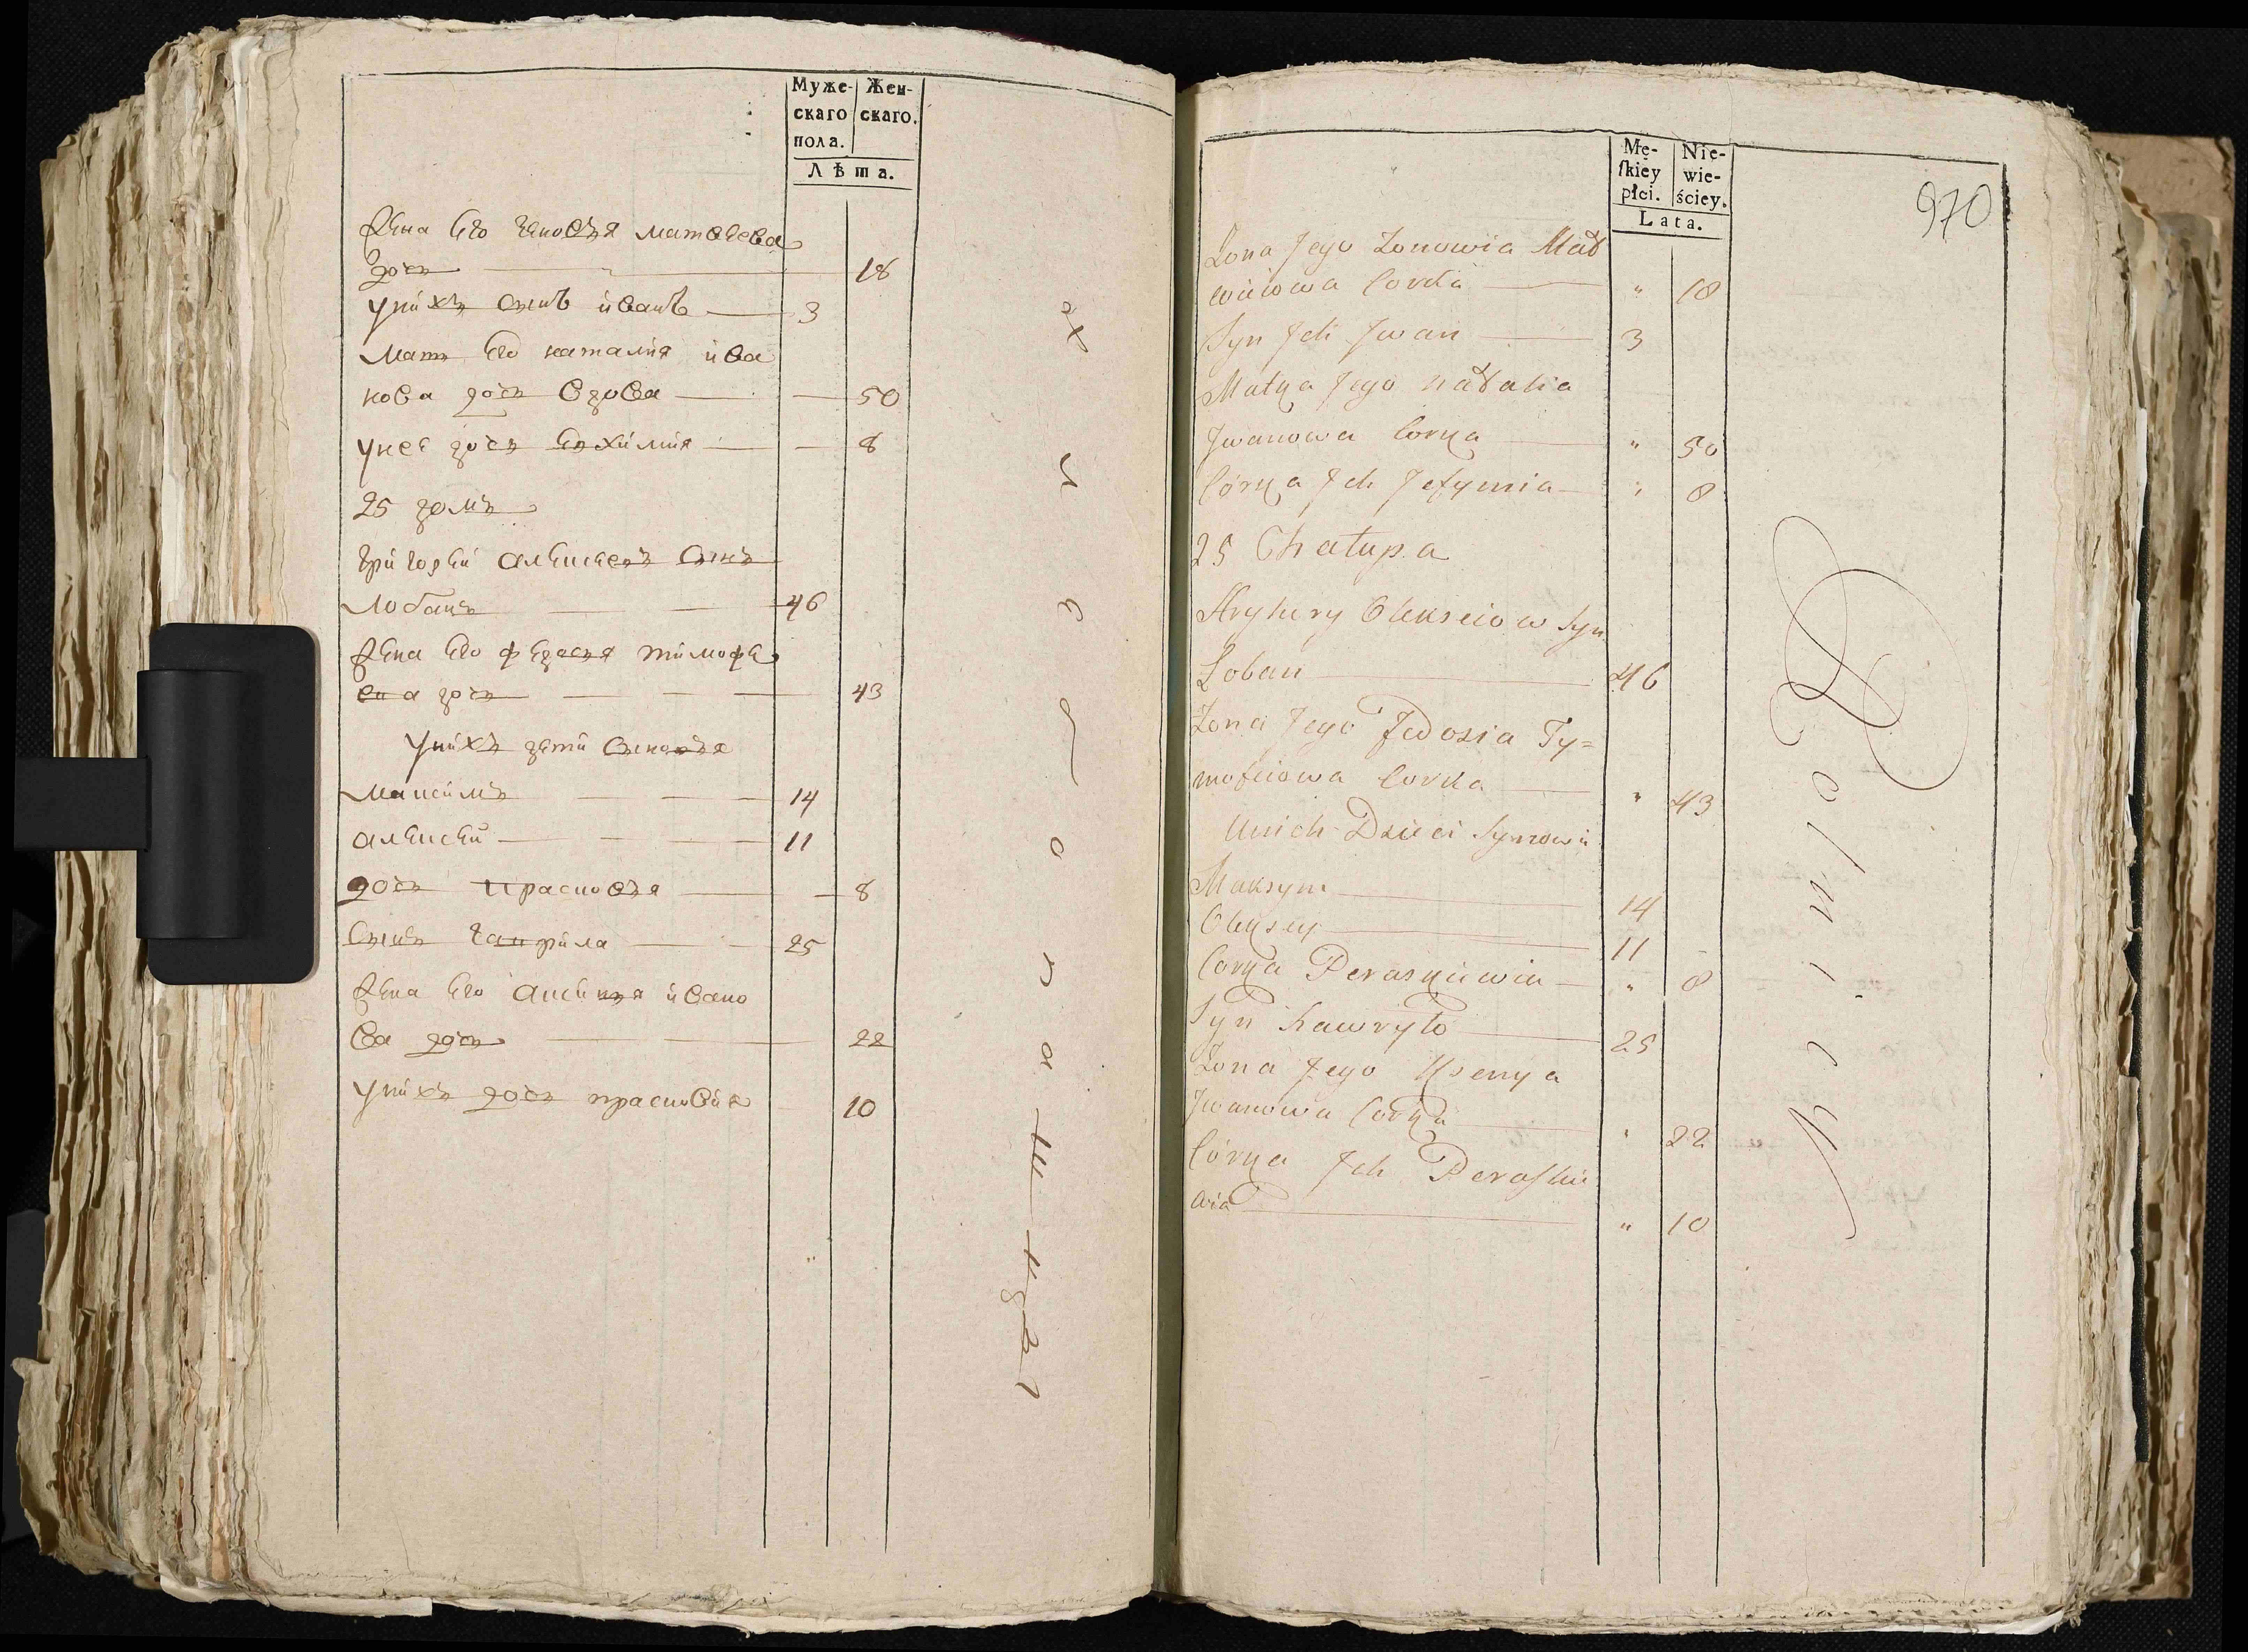 Муже-
скаго
пола.
Жен-
скаго.
Лѣта.
Жена Его Зеновъя матвеева
дочъ 18
Унихъ Сынъ иванъ 3
Мать Его наталия ива
нова дочъ вдова 50
Унее дочъ Ефимия 8
25 домъ
Григорей алексеевъ Сынъ
Лобанъ 46
Жена Его федосия тимофе
ева дочъ 43
Унихъ дети Сыновъя
Максимъ 14
алексей 11
дочъ Прасковъя 8
Сынъ Гаврила 25
Жена Его аксинъя ивано
ва дочъ 22
Унихъ дочъ прасковия 10
Mę-
ſkiey
płci.
Nie-
wie-
ściey.
Lata.
970
Żona Jego Zenowia Mat
wiiowa Corka " 18
Syn Ich Jwan 3
Matka Jego Natalia
Jwanowa Corka " 50
Córka Ich Jefymia " 8
25 Chałupa
Hryhory Olekseiow Syn
Loban 46
Żona Jego Fedosia Ty=
mofeiowa Corka " 43
Unich Dzieci Synowie
Maksym 14
Oleksey 11
Corka Peraskiewia " 8
Syn Hawryło 25
Żona Jego Ksenya
Jwanowa Corka " 22
Córka Ich Peraſkie
wia " 10